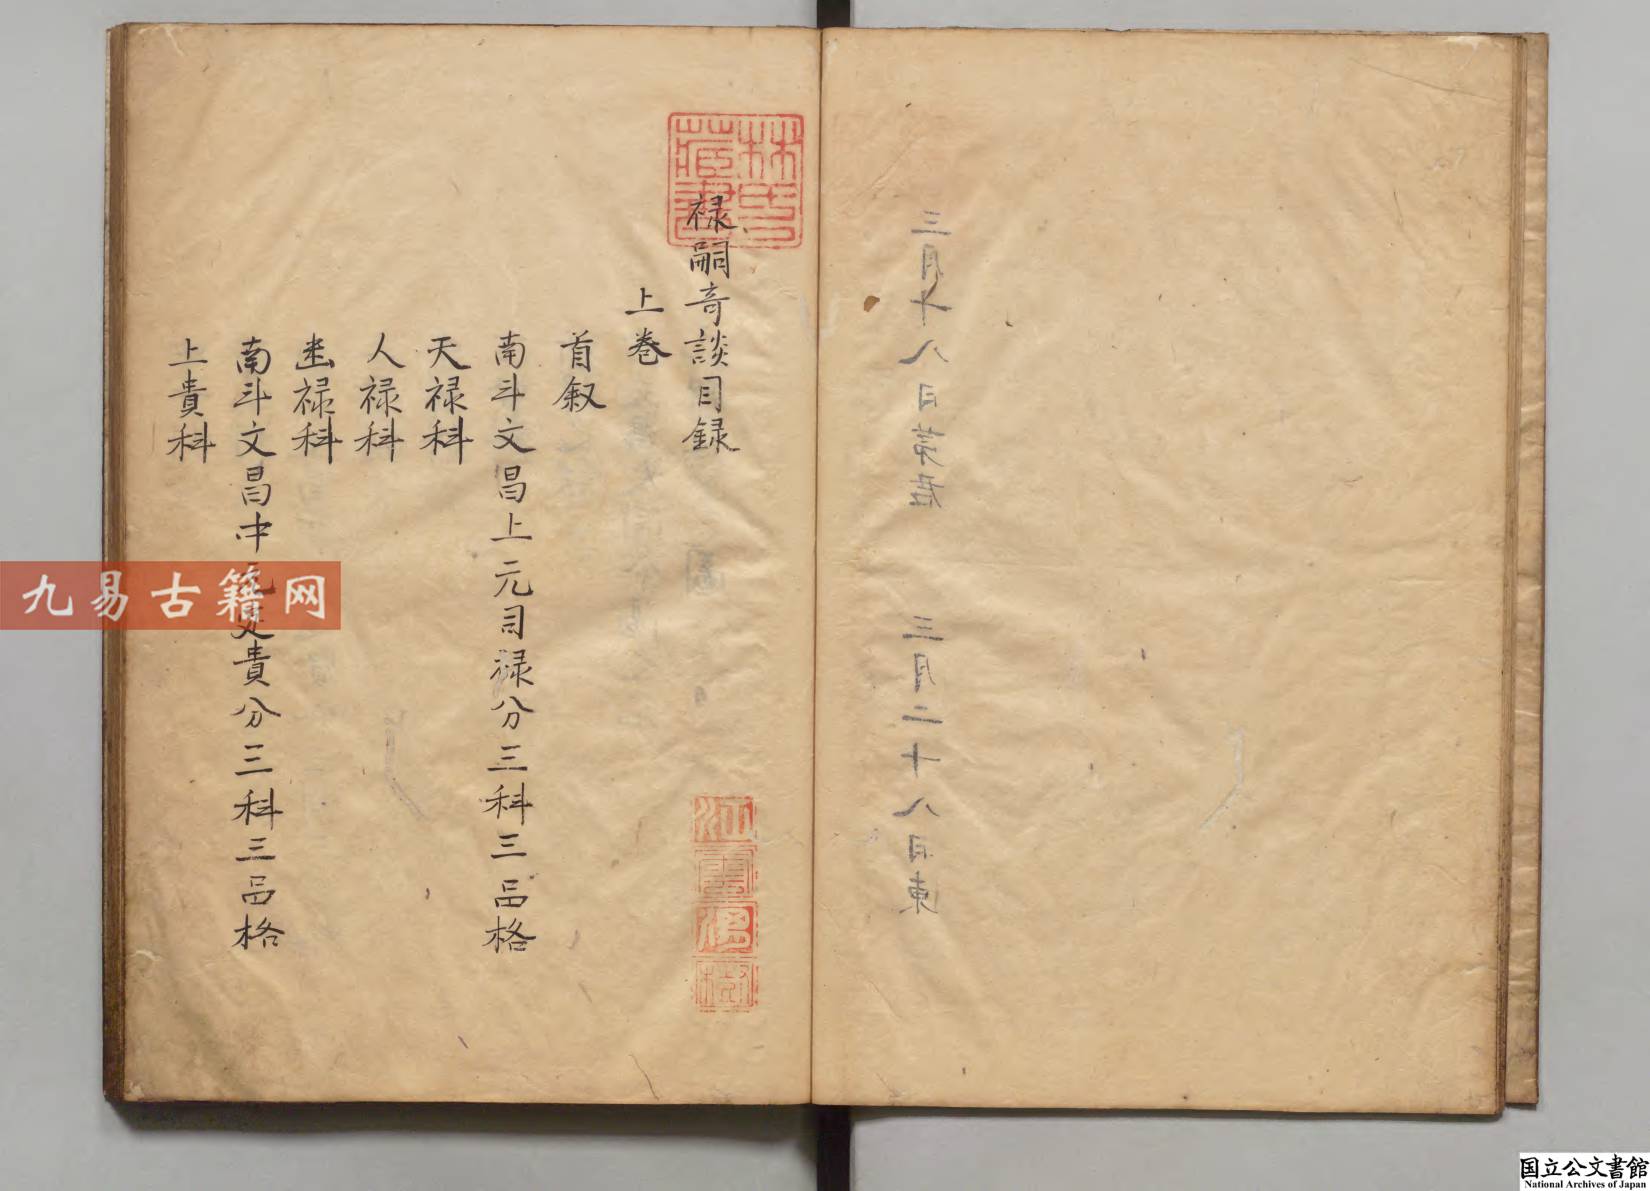 禄嗣奇談目録
上巻
首叙
南斗文昌上元司禄分三科三品格
天禄科
人禄科
幽禄科
南斗文昌中元定貴分三科三品格
上貴科
三月十八日第君
三月二十八日東
林氏藏書
江雲渭樹
九易古籍网
国立公文書館
National Archives of Japan